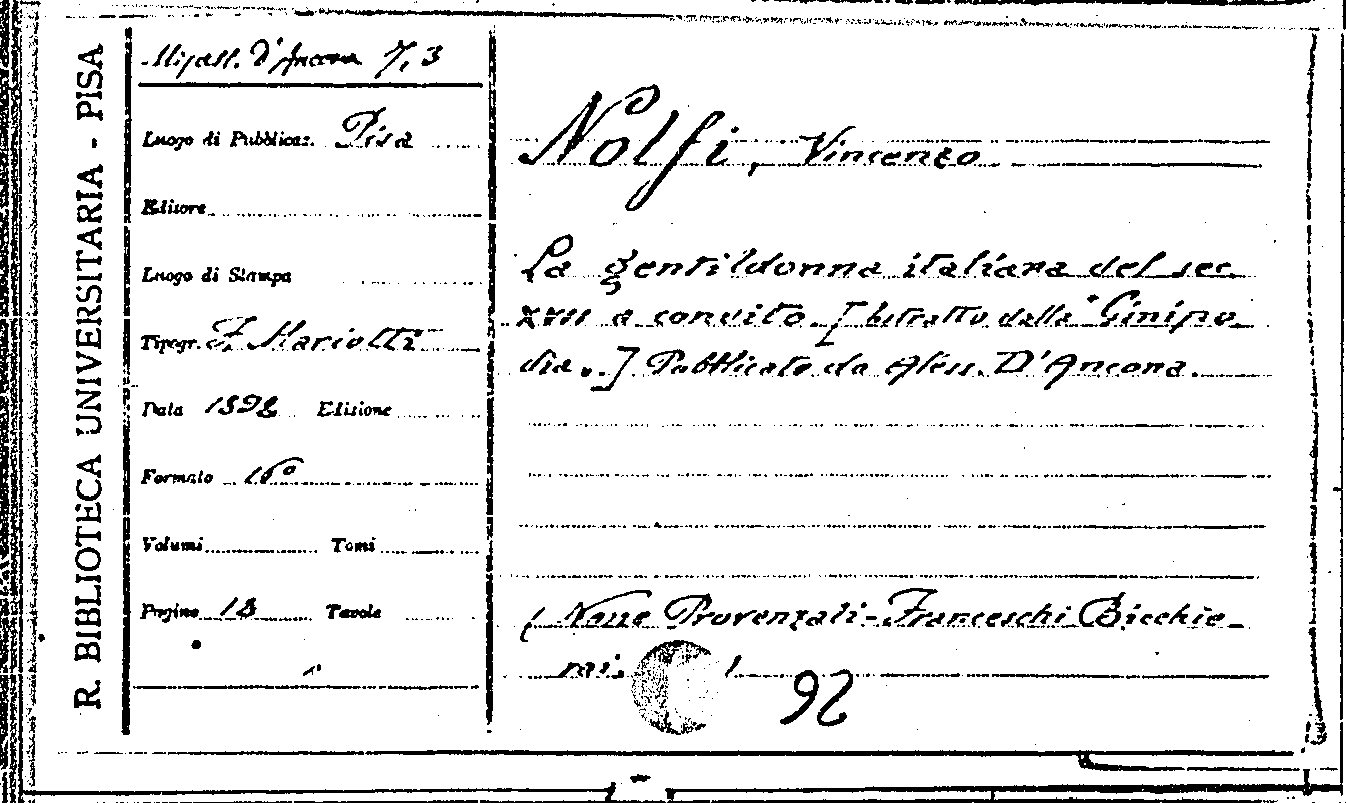 R. BIBLIOTECA UNIVERSITARIA - PISA
Miscell. D'Ancona 7, 3
Luogo di Pubblicaz. Pisa
Editore
Luogo di Stampa
Tipogr. F. Mariotti
Data 1898 Edizione
Formato 16º
Volumi Tomi
Pagine 13 Tavole
Nolfi, Vincenzo
La gentildonna italiana del sec
XVII a convito. [Estratto dalla "Ginipe
dia„.] Pubblicato da Aless. D'Ancona.
(Nozze Provenzali-Franceschi Bicchie-
rai. )
92